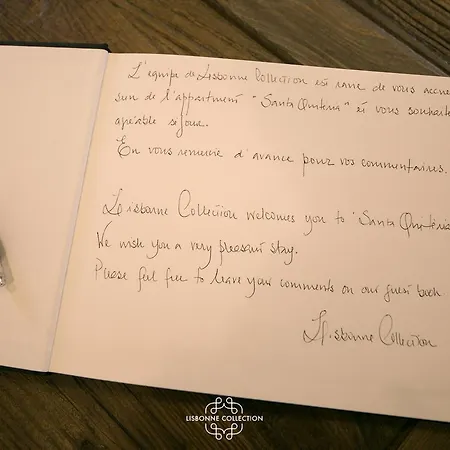 L'equipe de Lisbonne Collection est ravie de vous accue
sein de l'appartment "Santa Quiteria" et vous souhaite
agréable sejour.
En vous remercie d'avance pour vos commentaires.
Lisbonne Collection welcomes you to "Santa Quitéria
We wish you a very pleasant stay.
Please feel free to leave your comments on our guest book
Lisbonne Collection
LISBONNE COLLECTION